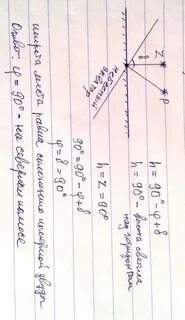 Z
P
δ
небесный
экватор
h = 90° - φ + δ
h = 90° - высота светила
над горизонтом
h = Z = 90°
90° = 90° - φ + δ
φ = δ = 90°
широта места равна склонению полярной звезды
Ответ: φ = 90° - на северном полюсе